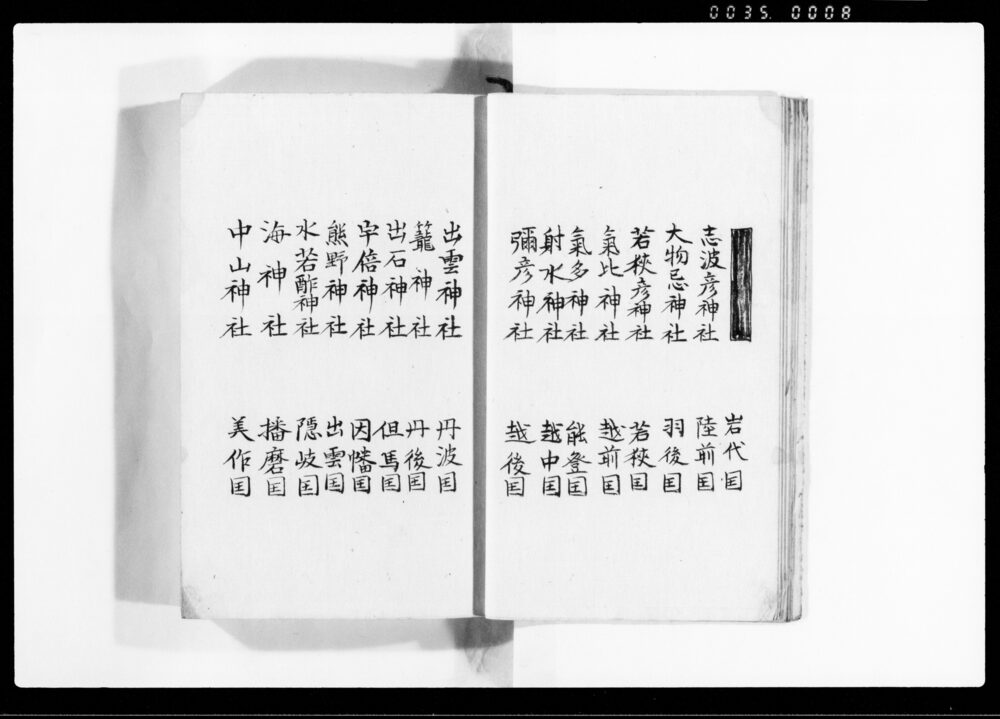 0035. 0008
岩代囯
志波彦神社 陸前囯
大物忌神社 羽後囯
若狭彦神社 若狭囯
氣比神社 越前囯
氣多神社 能登囯
射水神社 越中囯
彌彦神社 越後囯
出雲神社 丹波囯
籠神社 丹後囯
出石神社 但馬囯
宇倍神社 因幡囯
熊野神社 出雲囯
水若酢神社 隠岐囯
海神社 播磨囯
中山神社 美作囯